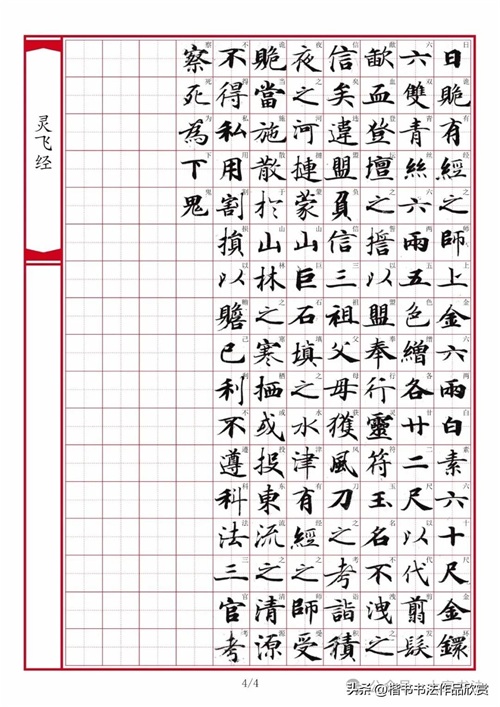 日䞈有經之師上金六兩白素六十尺金鐶
六雙青絲六兩五色繒各廿二尺以代翦髮
歃血登壇之誓以盟奉行靈符玉名不洩之
信矣違盟負信三祖父母獲風刀之考詣積
夜之河摙蒙山巨石填之水津有經之師受
䞈當施散於山林之寒栖或投東流之清源
不得私用割損以贍己利不遵科法三官考
察死為下鬼
灵飞经
4/4
头条 @楷书书法作品欣赏